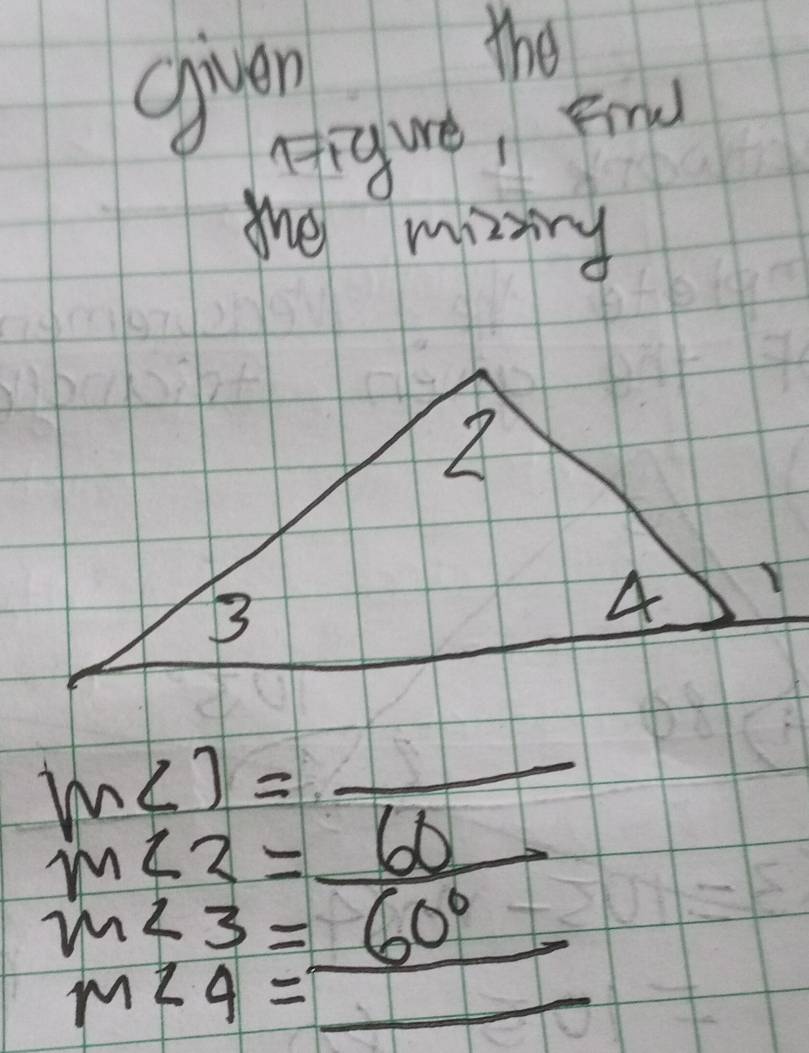 given the
Figure, Find
the mizzing
2
3 4 1
m<1 =
m<2 = 60
m<3 = 60°
m<4 =